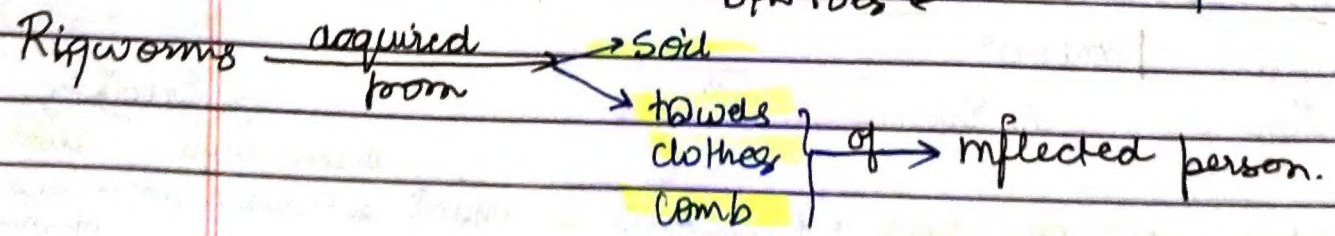 Rigworms acquired from → soil
→ towels
clothes } of → infected person.
comb